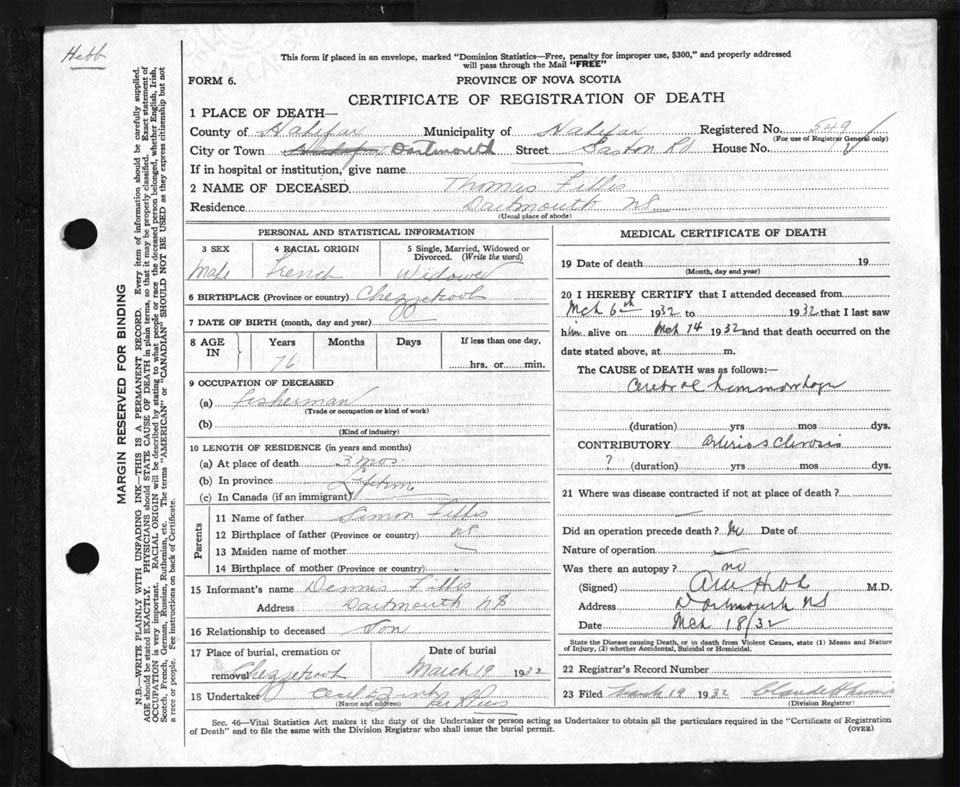 Hebb
This form if placed in an envelope, marked "Dominion Statistics—Free, penalty for improper use, $300," and properly addressed
will pass through the Mail "FREE"
FORM 6.
PROVINCE OF NOVA SCOTIA
CERTIFICATE OF REGISTRATION OF DEATH
1 PLACE OF DEATH—
County of Halifax Municipality of Halifax Registered No. 549
(For use of Registrar General only)
City or Town Dartmouth Street Gaston Rd House No.
If in hospital or institution, give name
2 NAME OF DECEASED Thomas Fillis
Residence Dartmouth NS
(Usual place of abode)
PERSONAL AND STATISTICAL INFORMATION
3 SEX 4 RACIAL ORIGIN 5 Single, Married, Widowed or Divorced. (Write the word)
Male French Widower
6 BIRTHPLACE (Province or country) Chezzetcook
7 DATE OF BIRTH (month, day and year)
8 AGE IN Years Months Days If less than one day,
76 hrs. or min.
9 OCCUPATION OF DECEASED
(a) Fisherman
(Trade or occupation or kind of work)
(b)
(Kind of industry)
10 LENGTH OF RESIDENCE (in years and months)
(a) At place of death 3 mos.
(b) In province Lifetime
(c) In Canada (if an immigrant)
Parents
11 Name of father Simon Fillis
12 Birthplace of father (Province or country) NS
13 Maiden name of mother
14 Birthplace of mother (Province or country)
15 Informant's name Dennis Fillis
Address Dartmouth NS
16 Relationship to deceased Son
17 Place of burial, cremation or removal Chezzetcook
Date of burial
March 19 1932
18 Undertaker Cecil E
(Name and address)
MEDICAL CERTIFICATE OF DEATH
19 Date of death 19
(Month, day and year)
20 I HEREBY CERTIFY that I attended deceased from
Mch 6th 1932 to 1932 that I last saw
him alive on Mch 14 1932 and that death occurred on the
date stated above, at m.
The CAUSE of DEATH was as follows:—
Cerebral hemmorrhage
(duration) yrs mos dys.
CONTRIBUTORY Arteriosclerosis
? (duration) yrs mos dys.
21 Where was disease contracted if not at place of death?
Did an operation precede death? No Date of
Nature of operation
Was there an autopsy? no
(Signed) Hebb M.D.
Address Dartmouth NS
Date Mch 18/32
State the Disease causing Death, or in death from Violent Causes, state (1) Means and Nature
of Injury, (2) whether Accidental, Suicidal or Homicidal.
22 Registrar's Record Number
23 Filed March 19 1932
(Division Registrar)
Sec. 46—Vital Statistics Act makes it the duty of the Undertaker or person acting as Undertaker to obtain all the particulars required in the "Certificate of Registration
of Death" and to file the same with the Division Registrar who shall issue the burial permit.
(OVER)
MARGIN RESERVED FOR BINDING
N.B.—WRITE PLAINLY WITH UNFADING INK—THIS IS A PERMANENT RECORD. Every item of information should be carefully supplied.
AGE should be stated EXACTLY. PHYSICIANS should STATE CAUSE OF DEATH in plain terms, so that it may be properly classified. Exact statement of
OCCUPATION is very important. RACIAL ORIGIN will be described by stating to what people or race the deceased person belonged, whether English, Irish,
Scotch, French, German, Russian, Ruthenian, etc. The terms "AMERICAN" or "CANADIAN" SHOULD NOT BE USED as they express citizenship but not
a race or people. See instructions on back of Certificate.